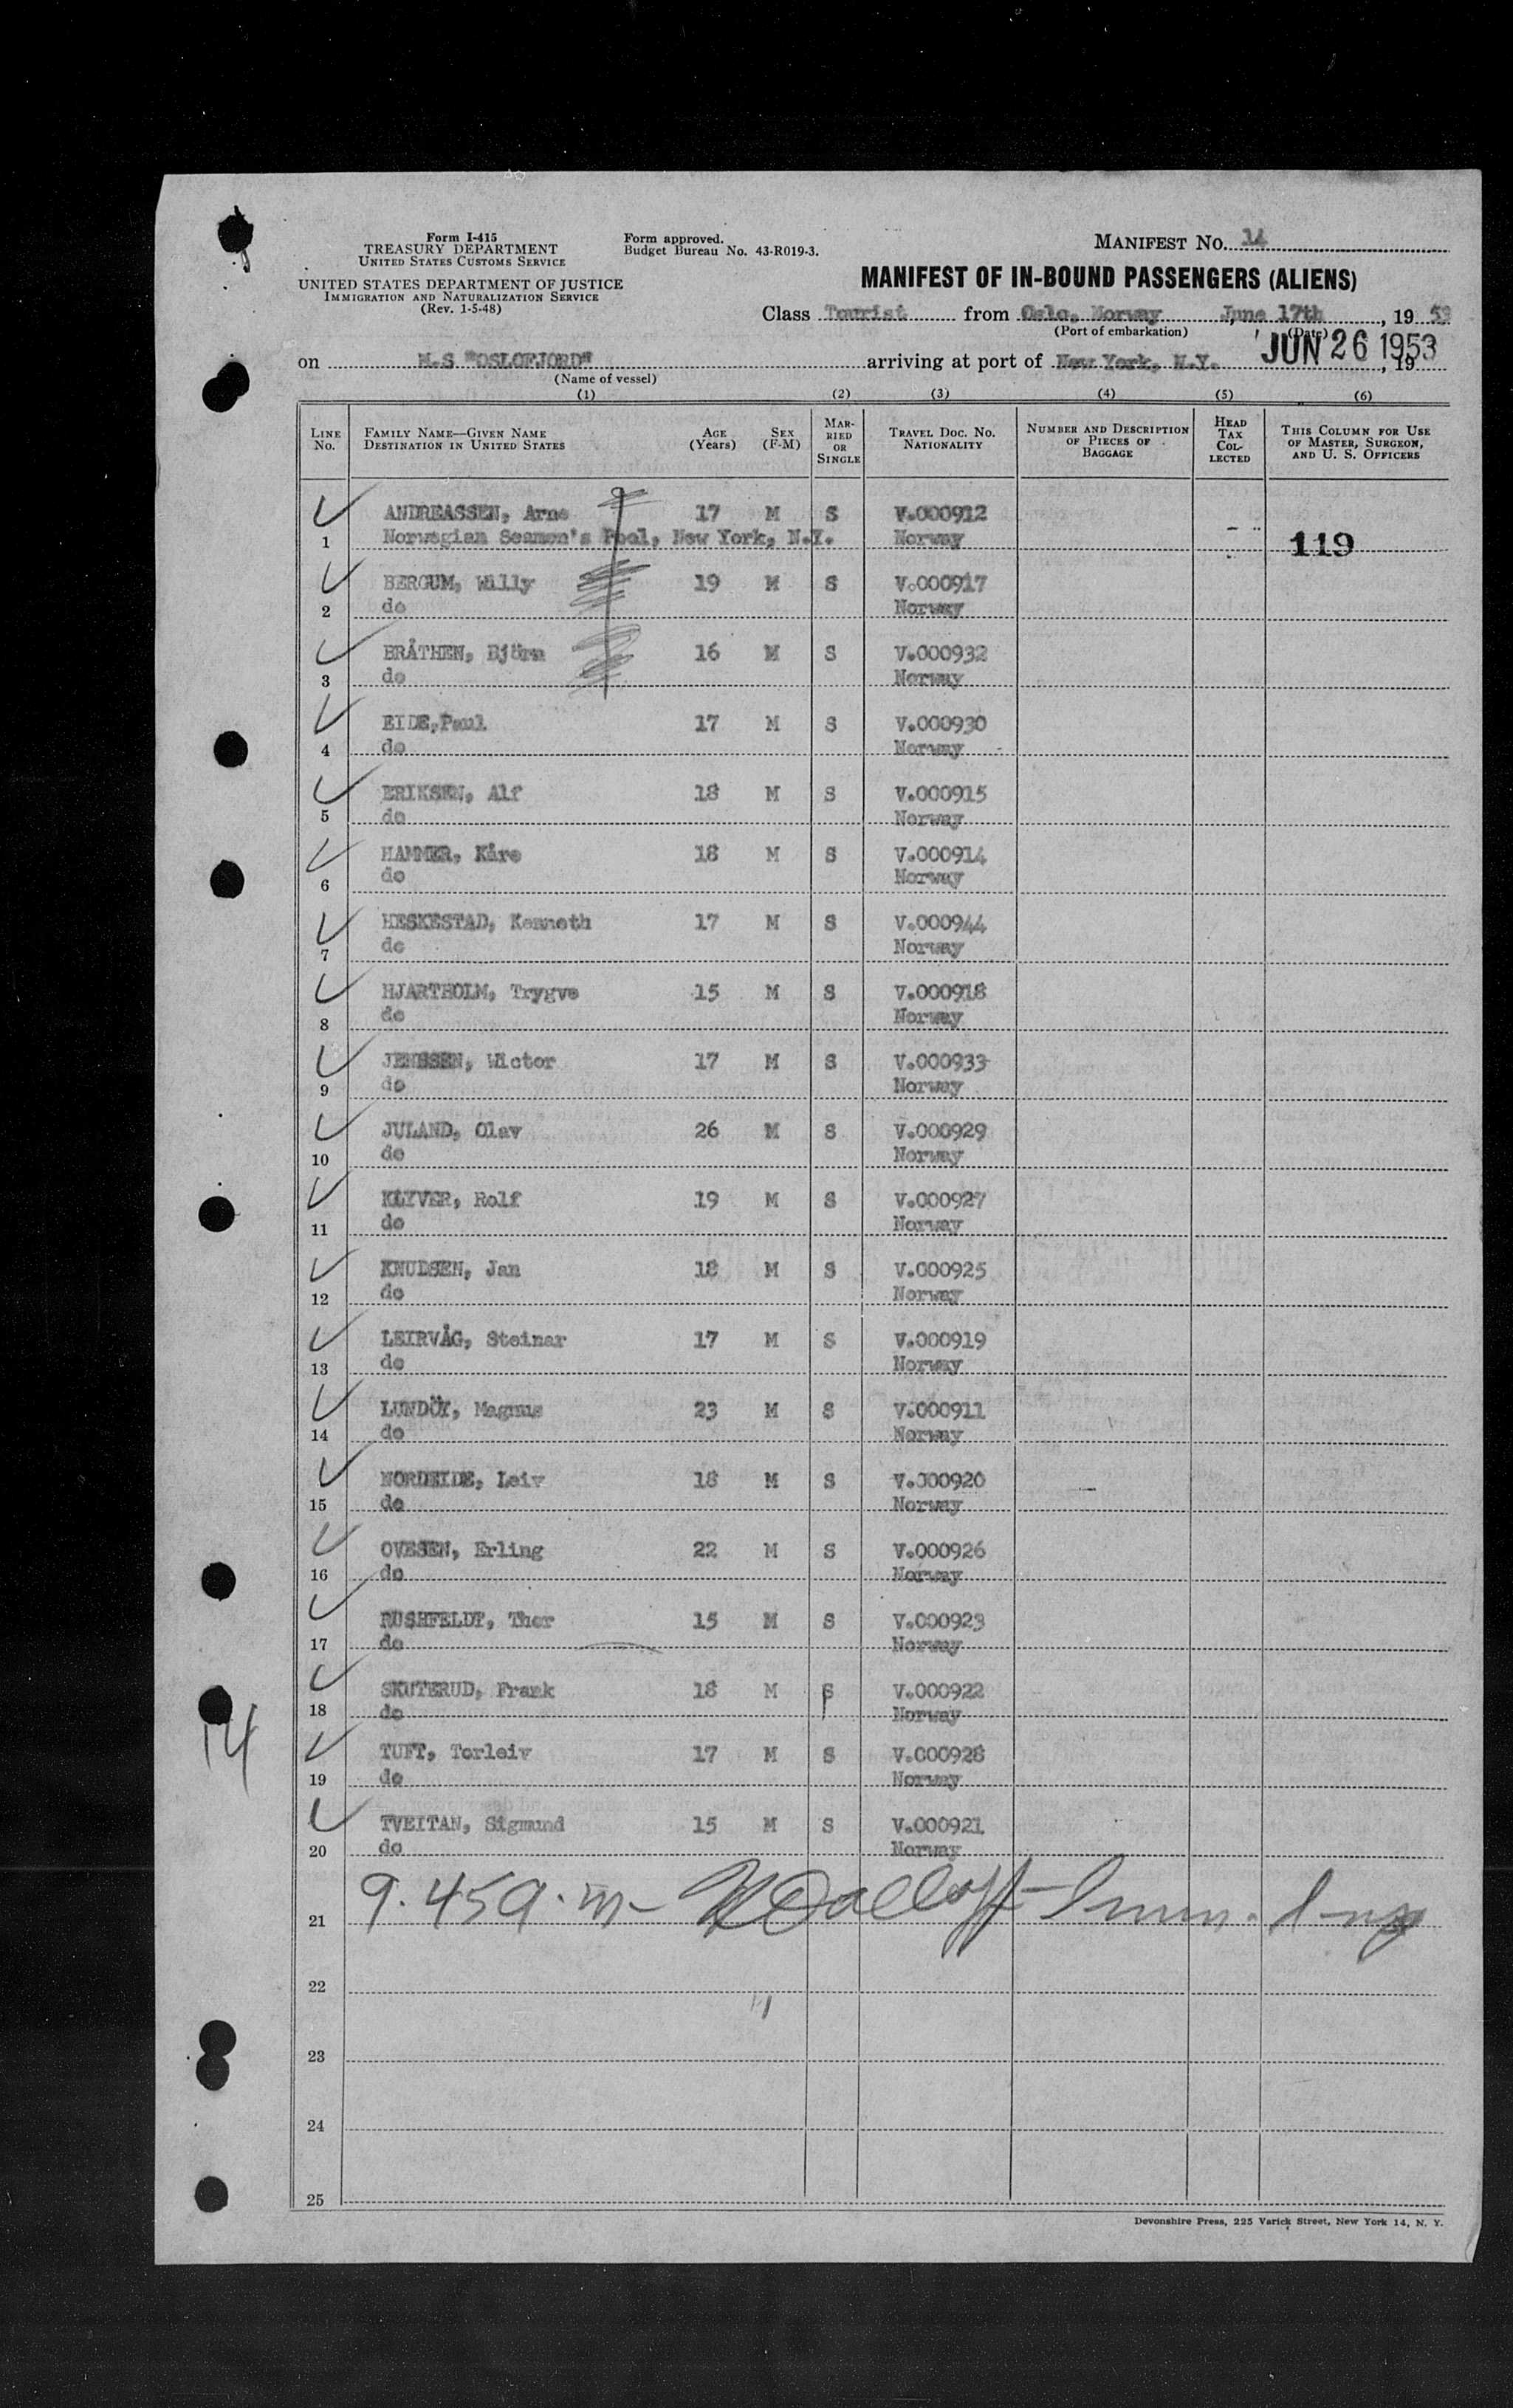 Form I-415
TREASURY DEPARTMENT
UNITED STATES CUSTOMS SERVICE
UNITED STATES DEPARTMENT OF JUSTICE
IMMIGRATION AND NATURALIZATION SERVICE
(Rev. 1-5-48)
Form approved.
Budget Bureau No. 43-R019-3.
MANIFEST NO. 14
MANIFEST OF IN-BOUND PASSENGERS (ALIENS)
Class Tourist from Oslo, Norway June 17th, 1953
(Port of embarkation) (Date)
on M.S "OSLOFJORD" arriving at port of New York, N.Y. JUN 26 1953, 19
(Name of vessel)
(1) (2) (3) (4) (5) (6)
LINE NO. FAMILY NAME—GIVEN NAME DESTINATION IN UNITED STATES AGE (Years) SEX (F-M) MARRIED OR SINGLE TRAVEL DOC. NO. NATIONALITY NUMBER AND DESCRIPTION OF PIECES OF BAGGAGE HEAD TAX COLLECTED THIS COLUMN FOR USE OF MASTER, SURGEON, AND U. S. OFFICERS
ANDREASSEN, Arne 17 M S V.000912
1 Norwegian Seamen's Pool, New York, N.Y. Norway 119
BERGUM, Willy 19 M S V.000917
2 do Norway
BRÅTHEN, Björn 16 M S V.000932
3 do Norway
EIDE,Paul 17 M S V.000930
4 do Norway
ERIKSEN, Alf 18 M S V.000915
5 do Norway
HAMMER, Kåre 18 M S V.000914
6 do Norway
HESKESTAD, Kenneth 17 M S V.000944
7 do Norway
HJARTHOLM, Trygve 15 M S V.000918
8 do Norway
JENSSEN, Wictor 17 M S V.000933
9 do Norway
JULAND, Olav 26 M S V.000929
10 do Norway
KLYVER, Rolf 19 M S V.000927
11 do Norway
KNUDSEN, Jan 18 M S V.000925
12 do Norway
LEIRVÅG, Steinar 17 M S V.000919
13 do Norway
LUNDÖY, Magnus 23 M S V.000911
14 do Norway
NORDEIDE, Leiv 18 M S V.000920
15 do Norway
OVESEN, Erling 22 M S V.000926
16 do Norway
RUSHFELDT, Thor 15 M S V.000923
17 do Norway
SKUTERUD, Frank 18 M S V.000922
18 do Norway
14
TUFT, Torleiv 17 M S V.000928
19 do Norway
TVEITAN, Sigmund 15 M S V.000921
20 do Norway
21 9.45 a.m – Imm. Insp
22
23
24
25
Devonshire Press, 225 Varick Street, New York 14, N. Y.